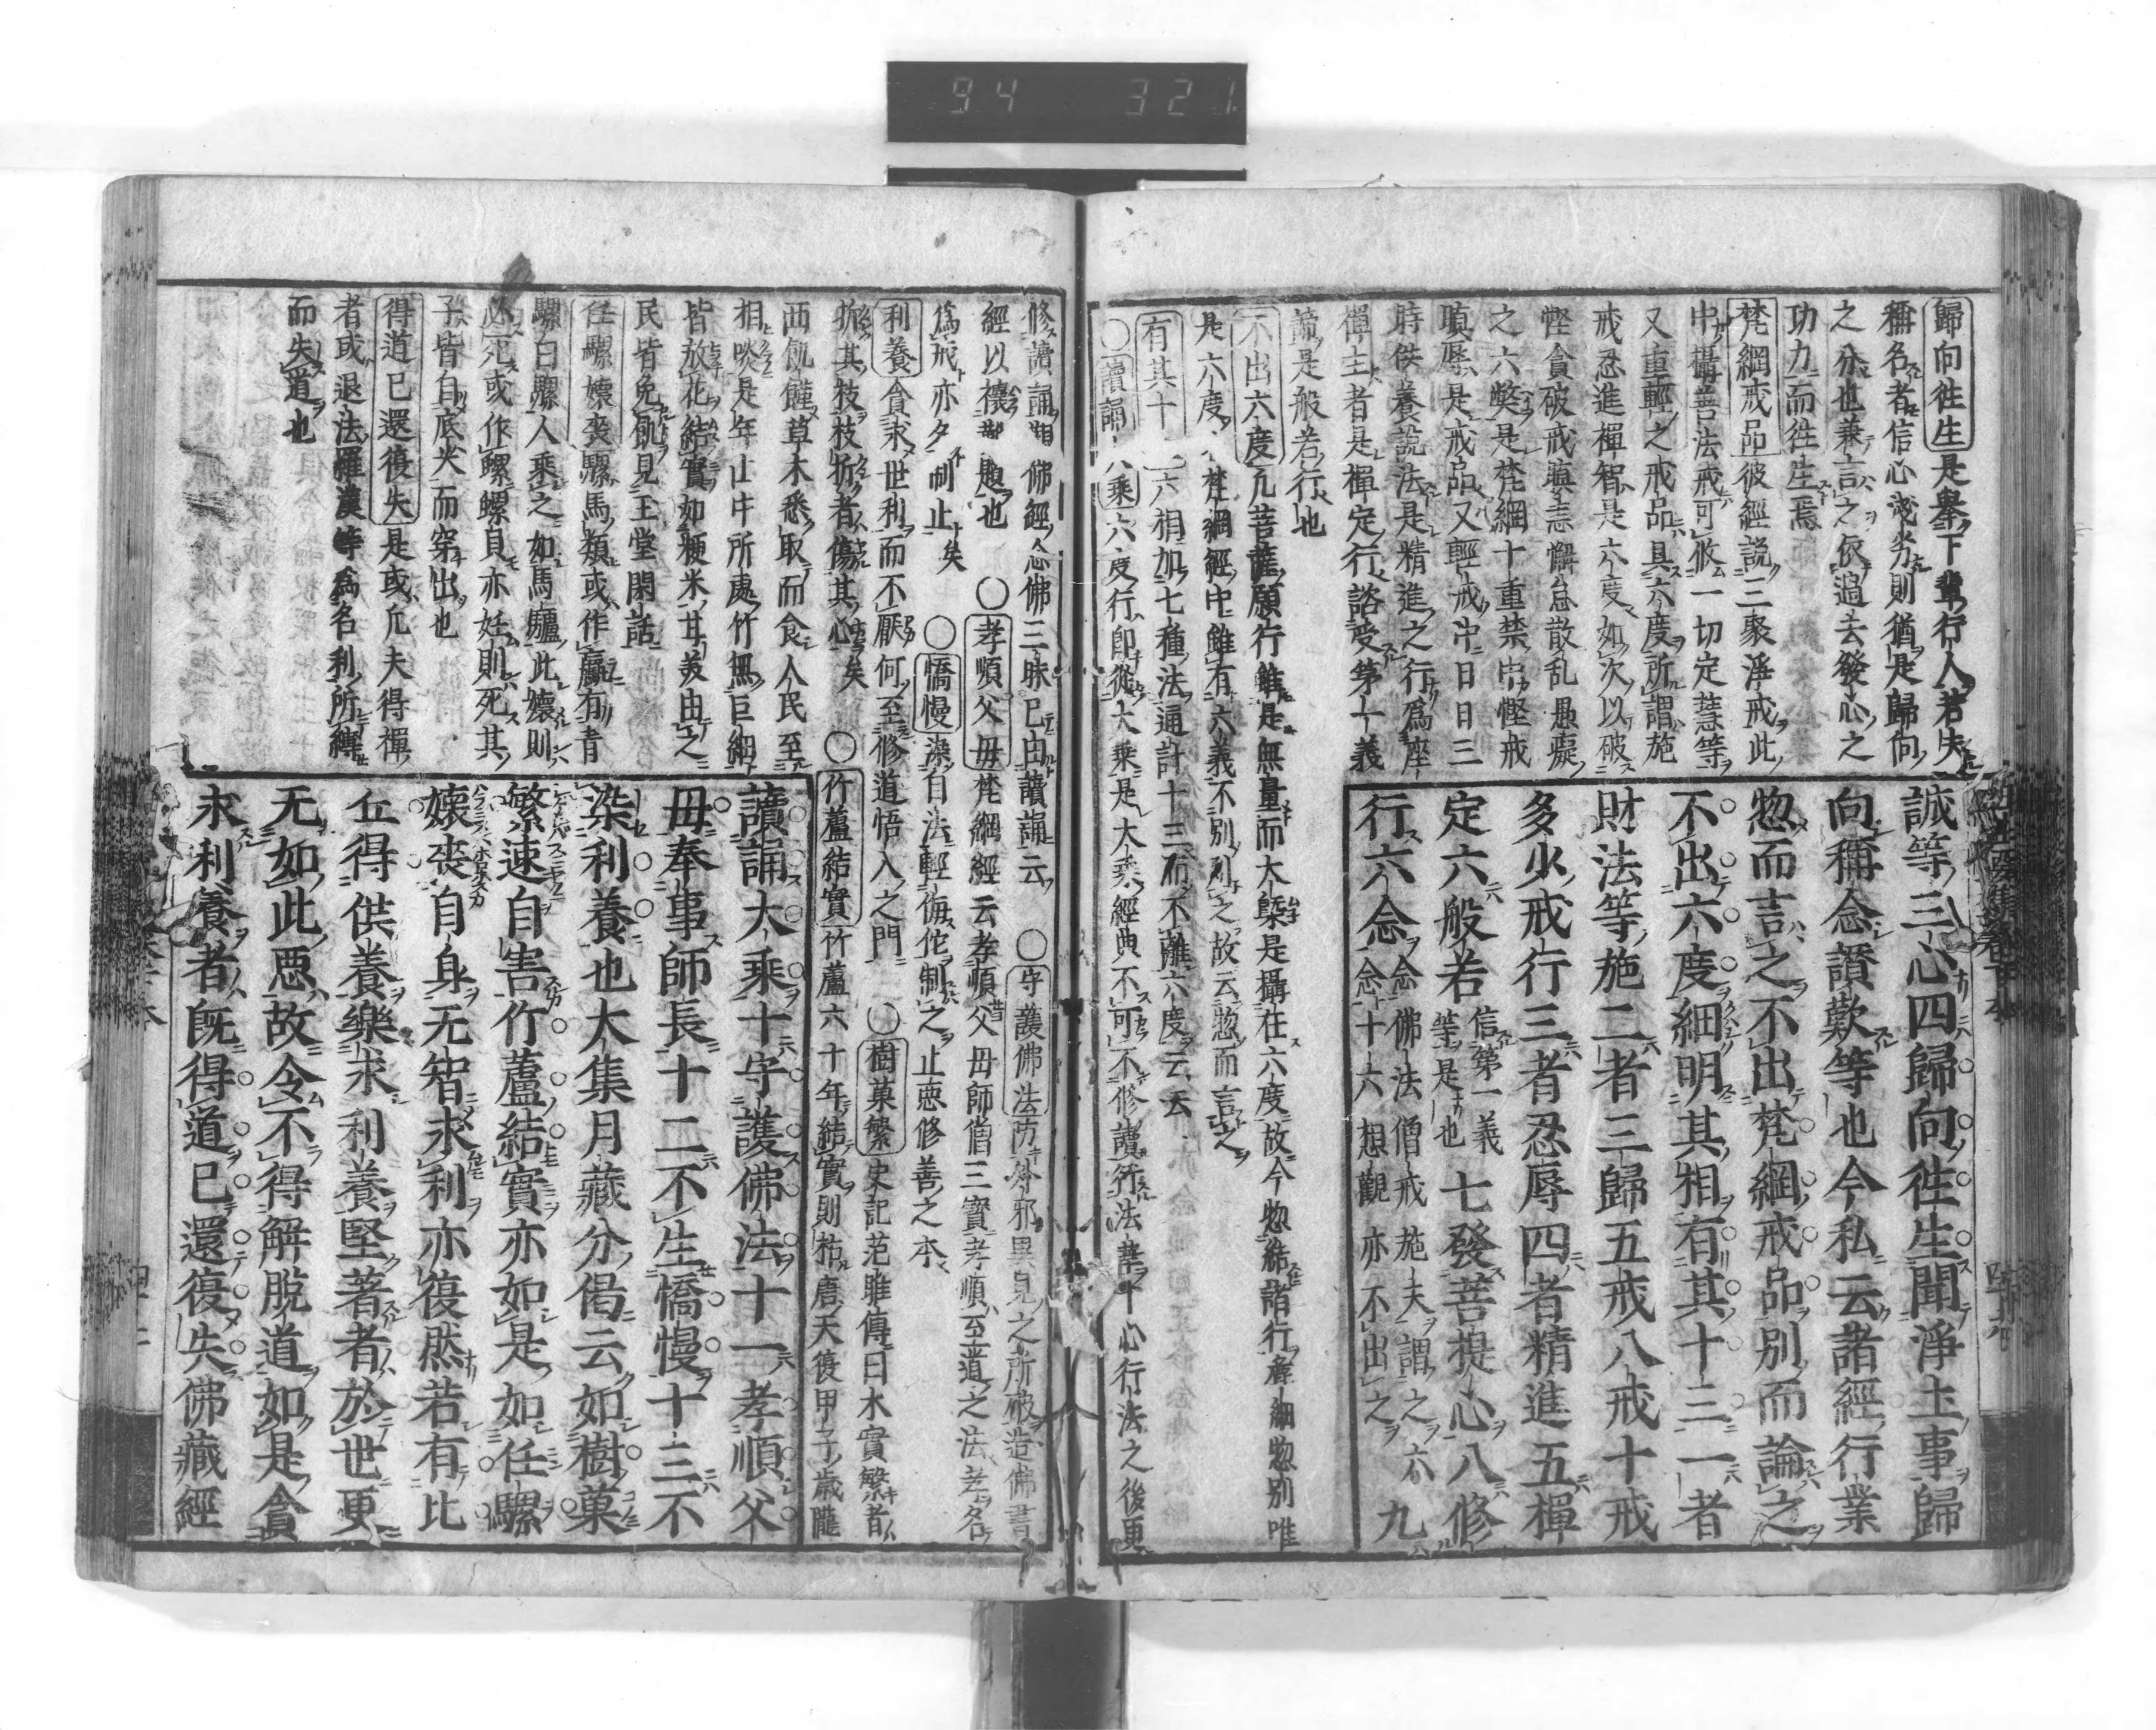 94 321
歸向往生是擧下輩行人若失
稱名者信心淺劣則猶是歸向
之分也兼言之依過去發心之
功力而往生焉
梵網戒品彼經說三聚淨戒此
中攝善法戒可攸一切定慧等
又重輕之戒品具六度所謂施
戒忍進禪智是六度如次以破
慳貪破戒瞋恚懈怠散乱愚癡
之六獘是梵網十重禁中慳戒
瞋辱是戒品又輕戒中日日三
時供養說法是精進之行爲座
禪主者是禪定行諮受第一義
諦是般若行也
不出六度凡菩薩願行雖是無量而大槩是攝在六度故今惣結諸行
是六度 梵網經中雖有六義不別列之故云惣而言之
有其十 六相加七種法通計十三而不離六度云云
○讀誦 乘六度行卽從大乘是大乘經典不可不修讀行法華十心行法之後更
誠等三心四歸向往生聞淨土事歸
向稱念讃歎等也今私云諸經行業
惣而言之不出梵網戒品別而論之
不出六度細明其相有其十三一者
財法等施二者三歸五戒八戒十戒
多少戒行三者忍辱四者精進五禪
定六般若信第一義等是也七發菩提心八修
行六念念佛法僧戒施天謂之六念十六想觀亦不出之九
修讀誦 佛經念佛三昧已由讀誦云 ○守護佛法防外邪異見之所破造佛書
經以禳 題也 ○孝順父母梵網經云孝順父母師僧三寶孝順至道之法孝名
爲戒亦夕制止矣 ○憍慢染白法輕侮佗制之止惡修善之本
利養貪求世利而不厭何至修道悟入之門 ○樹菓繁史記范雎傳曰木實繁者
披其枝枝折者傷其心矣 ○竹蘆結實竹蘆六十年結實則枯唐天復甲子歲隴
西飢饉草木悉取而食人民至
相啖是年止中所處竹無巨細
皆放花結實如粳米甘美由之
民皆免飢見玉堂閑話
任騾壞喪騾馬類或作驘有靑
騾白騾人乘之如馬驢此壞則
必死或作騾騾負亦妊則死其
子皆自底夾而穿出也
得道已還復失是或凡夫得禪
者或退法羅漢等爲名利所縛
而失道也
讀誦大乘十守護佛法十一孝順父
母奉事師長十二不生憍慢十三不
染利養也大集月藏分偈云如樹菓
繁速自害竹蘆結實亦如是如任騾
壞喪自身无智求利亦復然若有比
丘得供養樂求利養堅著者於世更
无如此惡故令不得解脫道如是貪
求利養者旣得道已還復失佛藏經